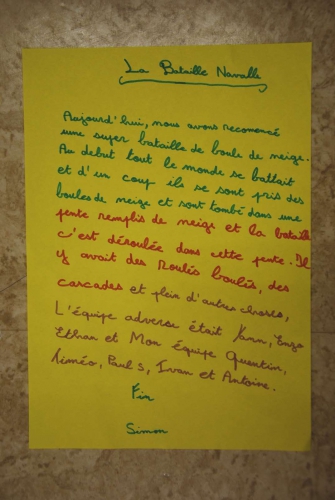 La Bataille Navalle
Aujourd'hui, nous avons recomencé
une super bataille de boule de neige.
Au debut tout le monde se battait
et d'un coup ils se sont pris des
boules de neige et sont tombé dans une
fente remplis de neige et la bataille
c'est déroulée dans cette fente. Il
y avait des Roulés boulés, des
cascades et plein d'autres choses,
L'équipe adverse était Yann, Enzo
Ethan et Mon équipe Quentin,
Timéo, Paul S, Ivan et Antoine.
Fin
Simon